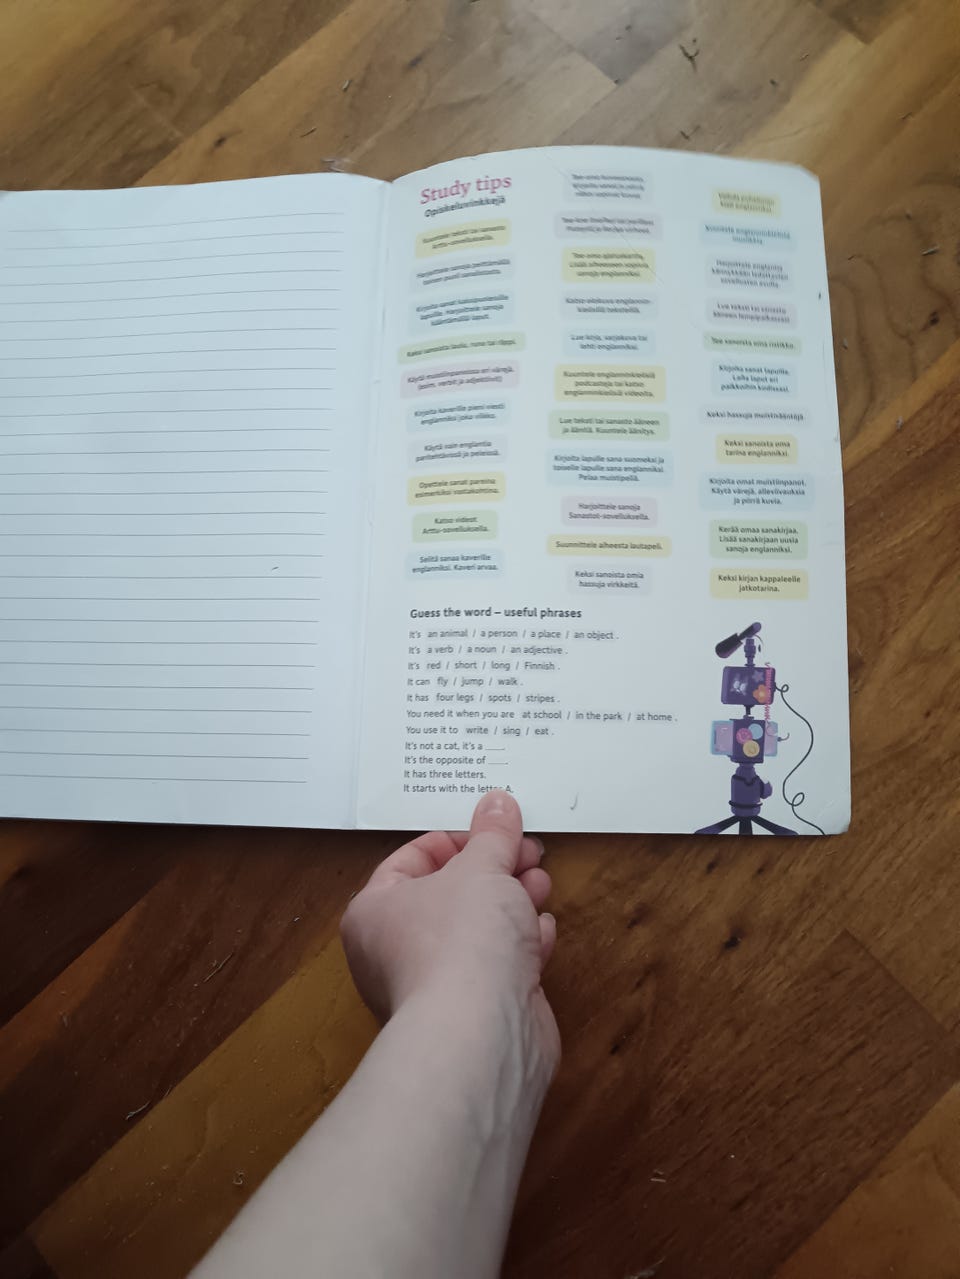 Study tips
Opiskeluvinkkejä
Kuuntele teksti tai sanasto
Arttu-sovelluksella.
Harjoittele sanoja peittämällä
toinen puoli sanalistasta.
Kirjoita sanat kaksipuolisille
lapuille. Harjoittele sanoja
kääntämällä laput.
Keksi sanoista laulu, runo tai räppi.
Käytä muistiinpanoissa eri värejä.
(esim. verbit ja adjektiivit)
Kirjoita kaverille pieni viesti
englanniksi joka viikko.
Käytä vain englantia
paritehtävissä ja peleissä.
Opettele sanat pareina
esimerkiksi vastakohtina.
Katso videot
Arttu-sovelluksella.
Selitä sanaa kaverille
englanniksi. Kaveri arvaa.
Tee oma ajatuskartta.
Lisää aiheeseen sopivia
sanoja englanniksi.
Katso elokuva englannin-
kielisillä teksteillä.
Lue kirja, sarjakuva tai
lehti englanniksi.
Kuuntele englanninkielisiä
podcasteja tai katso
englanninkielisiä videoita.
Lue teksti tai sanasto ääneen
ja äänitä. Kuuntele äänitys.
Kirjoita lapulle sana suomeksi ja
toiselle lapulle sana englanniksi.
Pelaa muistipeliä.
Harjoittele sanoja
Sanastot-sovelluksella.
Suunnittele aiheesta lautapeli.
Keksi sanoista omia
hassuja virkkeitä.
Vaihda puhelimen
kieli englanniksi.
Kuuntele englanninkielistä
musiikkia.
Harjoittele englantia
kännykkään ladattavien
sovellusten avulla.
Lue teksti tai sanasto
ääneen lempipaikassasi.
Tee sanoista oma ristikko.
Kirjoita sanat lapuille.
Laita laput eri
paikkoihin kodissasi.
Keksi hassuja muistisääntöjä.
Keksi sanoista oma
tarina englanniksi.
Kirjoita omat muistiinpanot.
Käytä värejä, alleviivauksia
ja piirrä kuvia.
Kerää omaa sanakirjaa.
Lisää sanakirjaan uusia
sanoja englanniksi.
Keksi kirjan kappaleelle
jatkotarina.
Guess the word – useful phrases
It's an animal / a person / a place / an object .
It's a verb / a noun / an adjective .
It's red / short / long / Finnish .
It can fly / jump / walk .
It has four legs / spots / stripes .
You need it when you are at school / in the park / at home .
You use it to write / sing / eat .
It's not a cat, it's a ____.
It's the opposite of ____.
It has three letters.
It starts with the letter A.